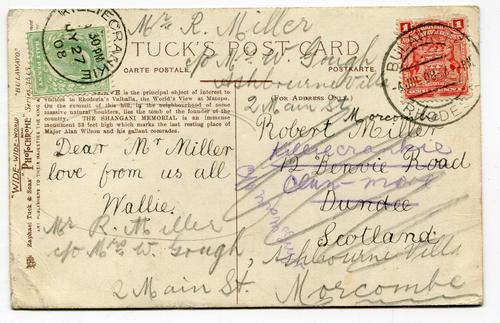 KILLIECRANKIE
30PM
JY 27
08
Mr R. Miller
TUCK'S POST CARD
CARTE POSTALE.
POSTKARTE.
c/o Mrs W. Gough
Ashbourne Villa
2 Main St.
(FOR ADDRESS ONLY.)
Morcombe
1
BULAWAYO
RHODESIA
"WIDE-WIDE-WORLD"
"BULAWAYO"
PHOTOCHROME
Raphael Tuck & Sons'
ART PUBLISHERS TO THEIR MAJESTIES THE KING
GRAVE is the principal object of interest to
visitors to Rhodesia's Valhalla, the World's View at Matopo.
On the summit of the hill, in the neighbourhood of some
massive natural boulders, lies the tomb of the founder of the
country. THE SHANGANI MEMORIAL is an immense
monument 33 feet high which marks the last resting place of
Major Alan Wilson and his gallant comrades.
Dear Mr Miller
love from us all
Wallie.
Robert Miller
Killiecrankie
12 Benvie Road
Dundee
Scotland.
Mr R. Miller
c/o Mrs W. Gough,
Ashbourne Villa
2 Main St.
Morcombe